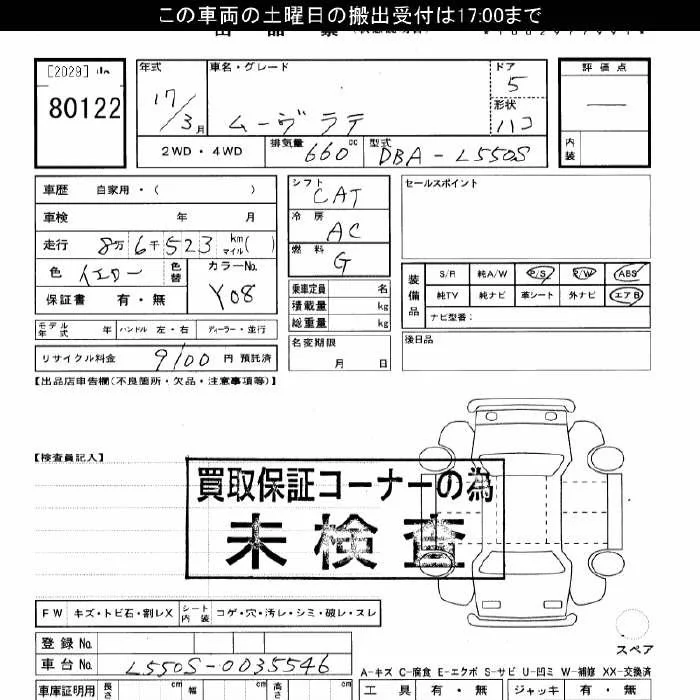 この車両の土曜日の搬出受付は17:00まで
[2029]
80122
年式
17/3月
車名・グレード
ムーヴラテ
ドア
5
形状
ハコ
評価点
内装
2WD・4WD
排気量
660cc
型式
DBA-L550S
車歴 自家用・( )
車検 年 月
走行 8万6千523 km マイル( )
色 イエロー
色替
カラーNo.
Y08
保証書 有・無
モデル年式 年 ハンドル 左・右 ディーラー・並行
リサイクル料金 9100 円 預託済
シフト
CAT
冷房
AC
燃料
G
乗車定員 名
積載量 kg
総重量 kg
名変期限
月 日
セールスポイント
装備品
S/R 純A/W P/S P/W ABS
純TV 純ナビ 革シート 外ナビ エアB
ナビ型番：
後日品
【出品店申告欄(不良箇所・欠品・注意事項等)】
【検査員記入】
買取保証コーナーの為
未検査
FW キズ・トビ石・割レX シート内装 コゲ・穴・汚レ・シミ・破レ・スレ
登録No.
車台No. L550S-0035546
スペア
A-キズ C-腐食 E-エクボ S-サビ U-凹ミ W-補修 XX-交換済
車庫証明用 長さ cm 幅 cm 高さ cm
工具 有・無 ジャッキ 有・無